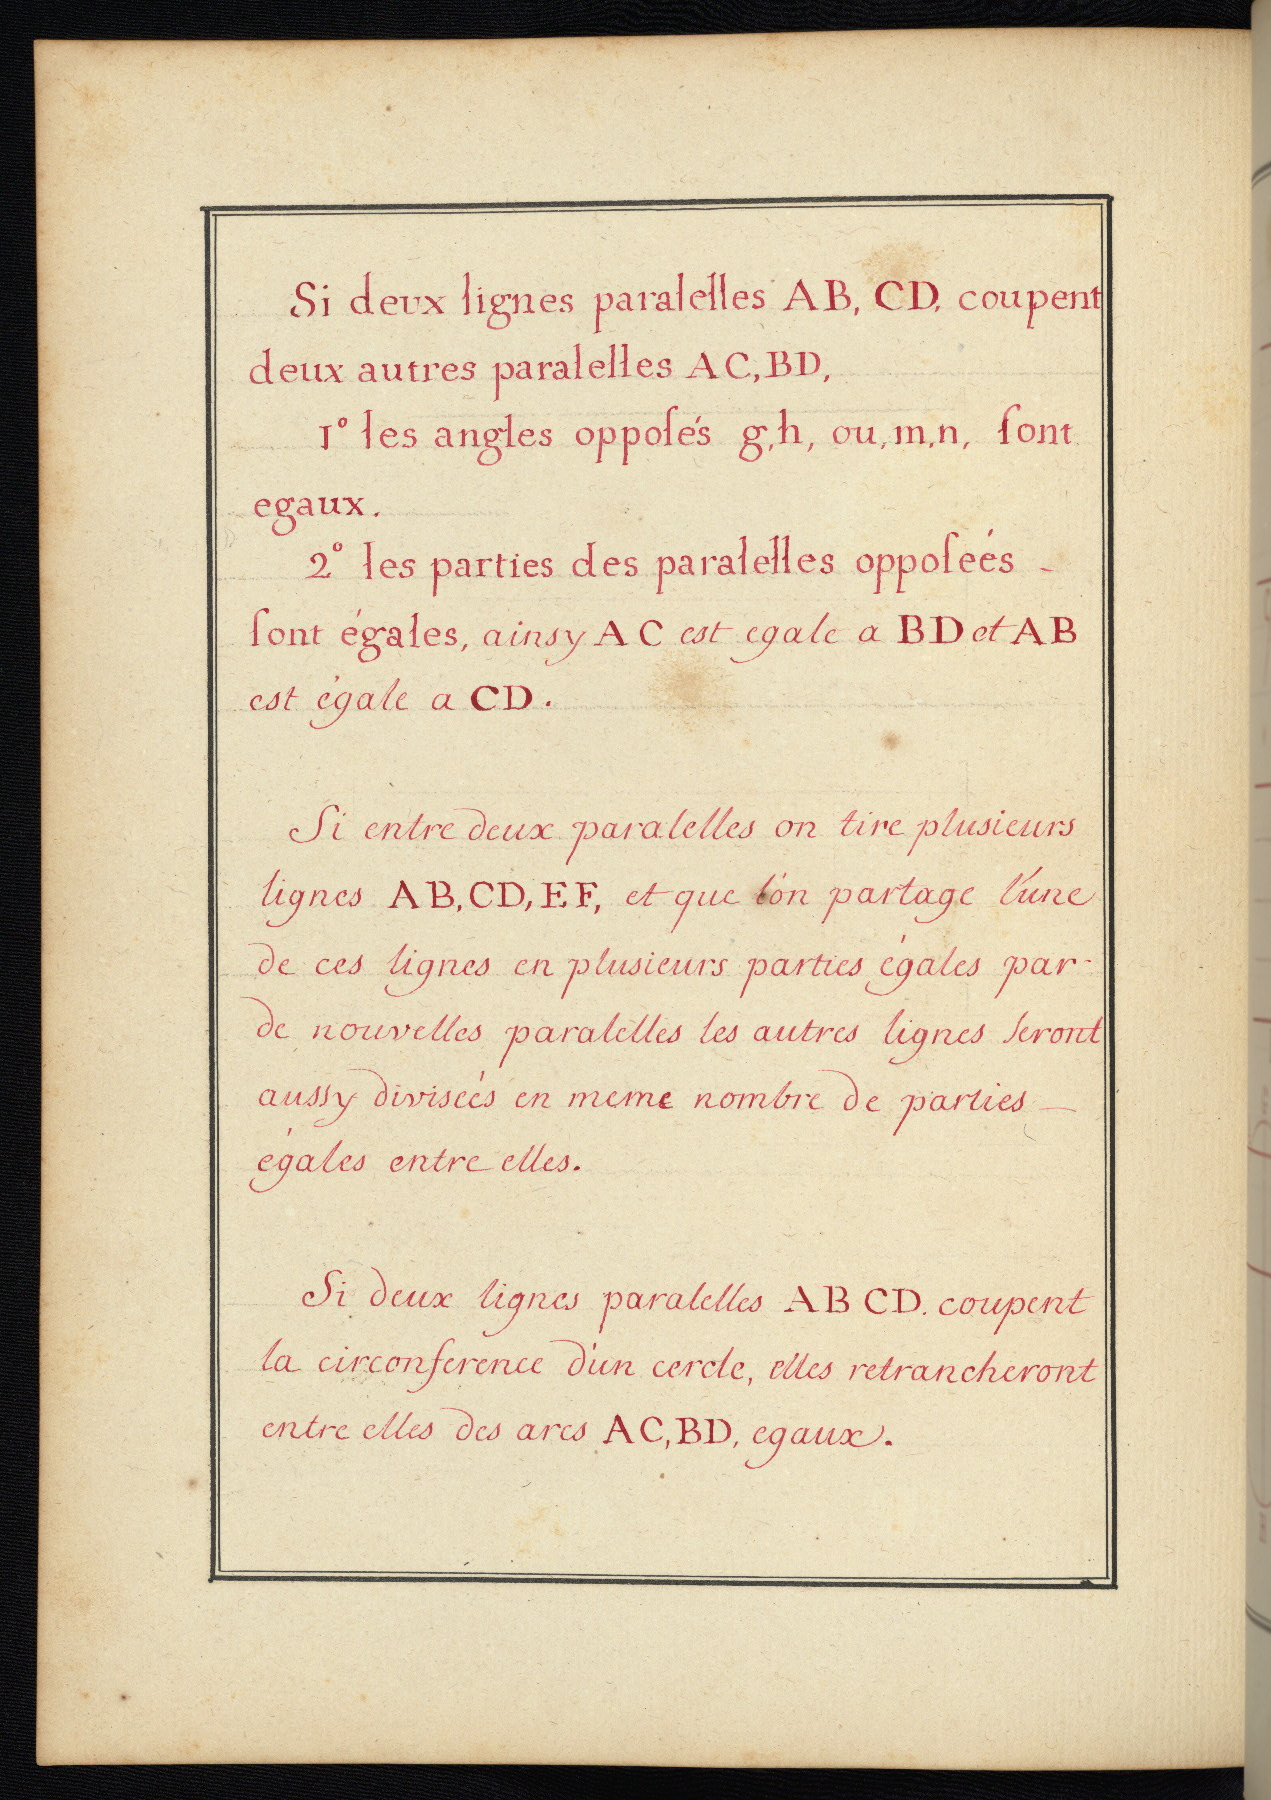 Si deux lignes paralelles AB, CD, coupent
deux autres paralelles AC, BD,
1° les angles opposés g, h, ou, m, n, sont
egaux.
2° les parties des paralelles opposeés -
sont égales, ainsy AC est egale a BD et AB
est égale a CD.
Si entre deux paralelles on tire plusieurs
lignes AB, CD, EF, et que l'on partage l'une
de ces lignes en plusieurs parties égales par-
de nouvelles paralelles les autres lignes seront
aussy diviseés en meme nombre de parties —
égales entre elles.
Si deux lignes paralelles AB CD. coupent
la circonference d'un cercle, elles retrancheront
entre elles des arcs AC, BD, egaux.